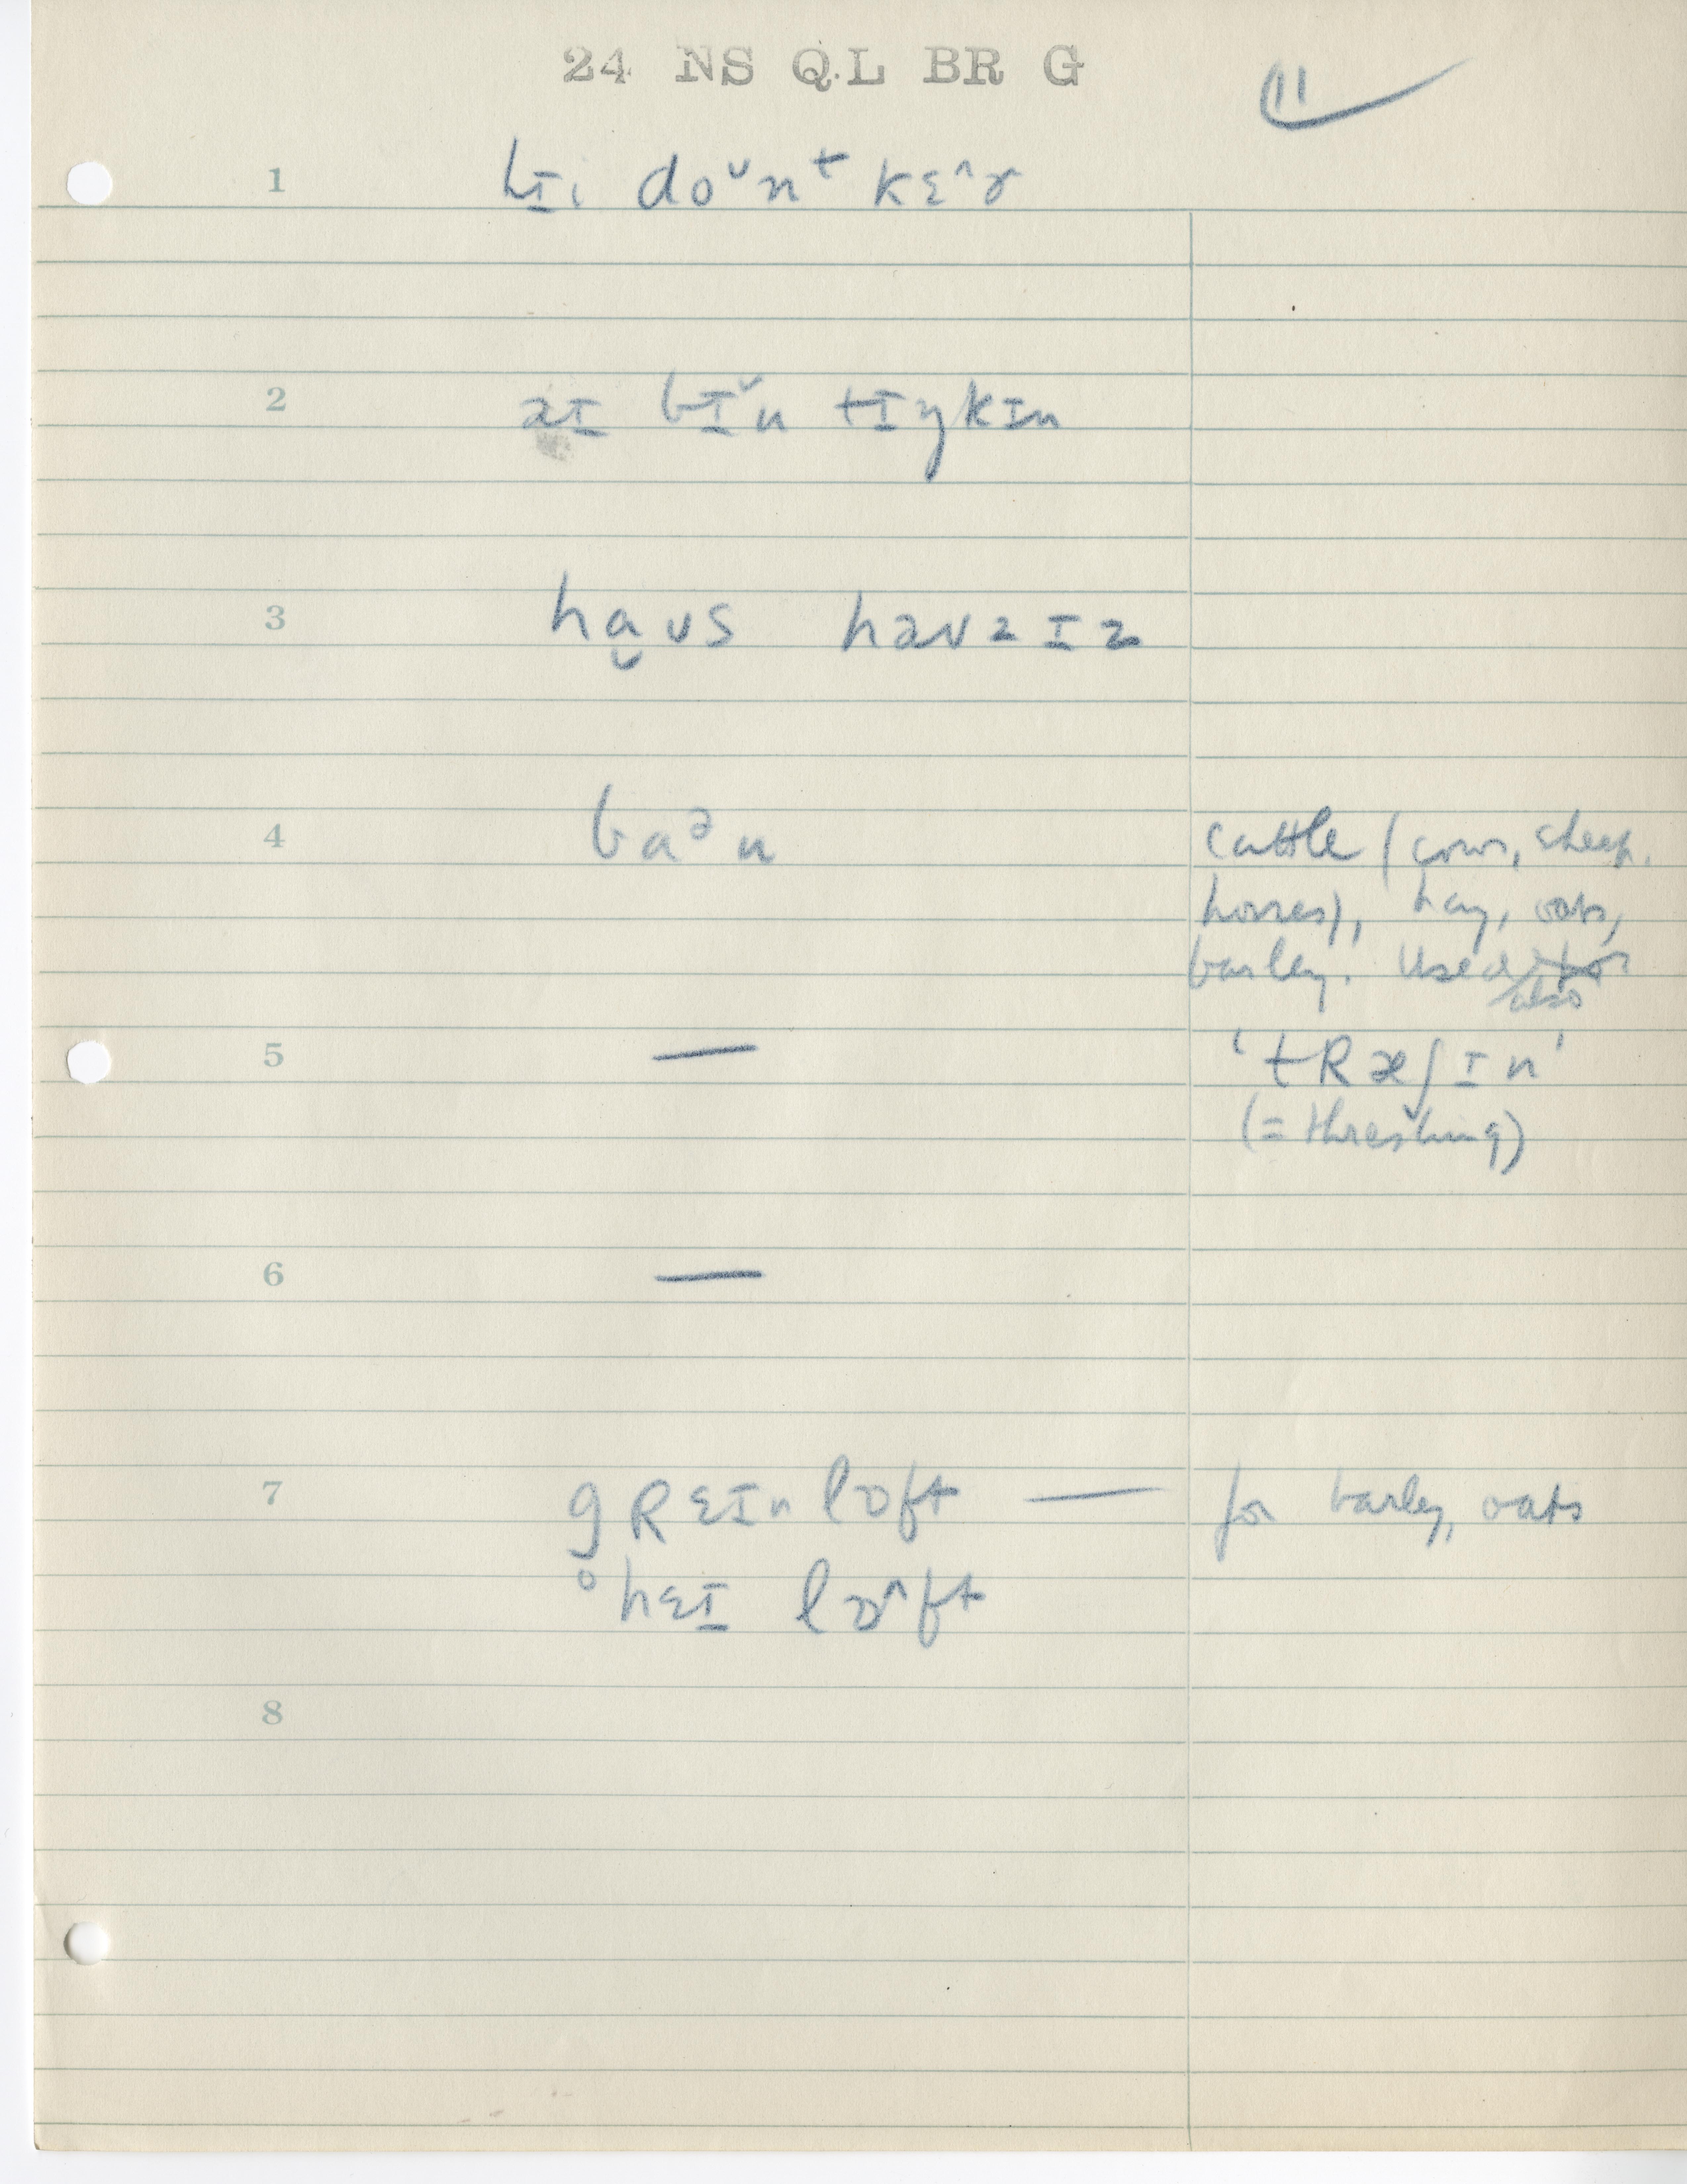 24 NS QL BR G
11
1 hɪi doˇnᵗ kɛ^r
2 əɪ bɪˇn tɪŋkɪn
3 ha̬ʊs həʊzɪz
4 baᵊn cattle (cows, sheep,
horses), hay, oats,
barley. Used for
also
5 — 'tRæʃɪn'
(= threshing)
6 —
7 gRɛɪn lɒft — for barley, oats
° hɛɪ lɒ^ft
8